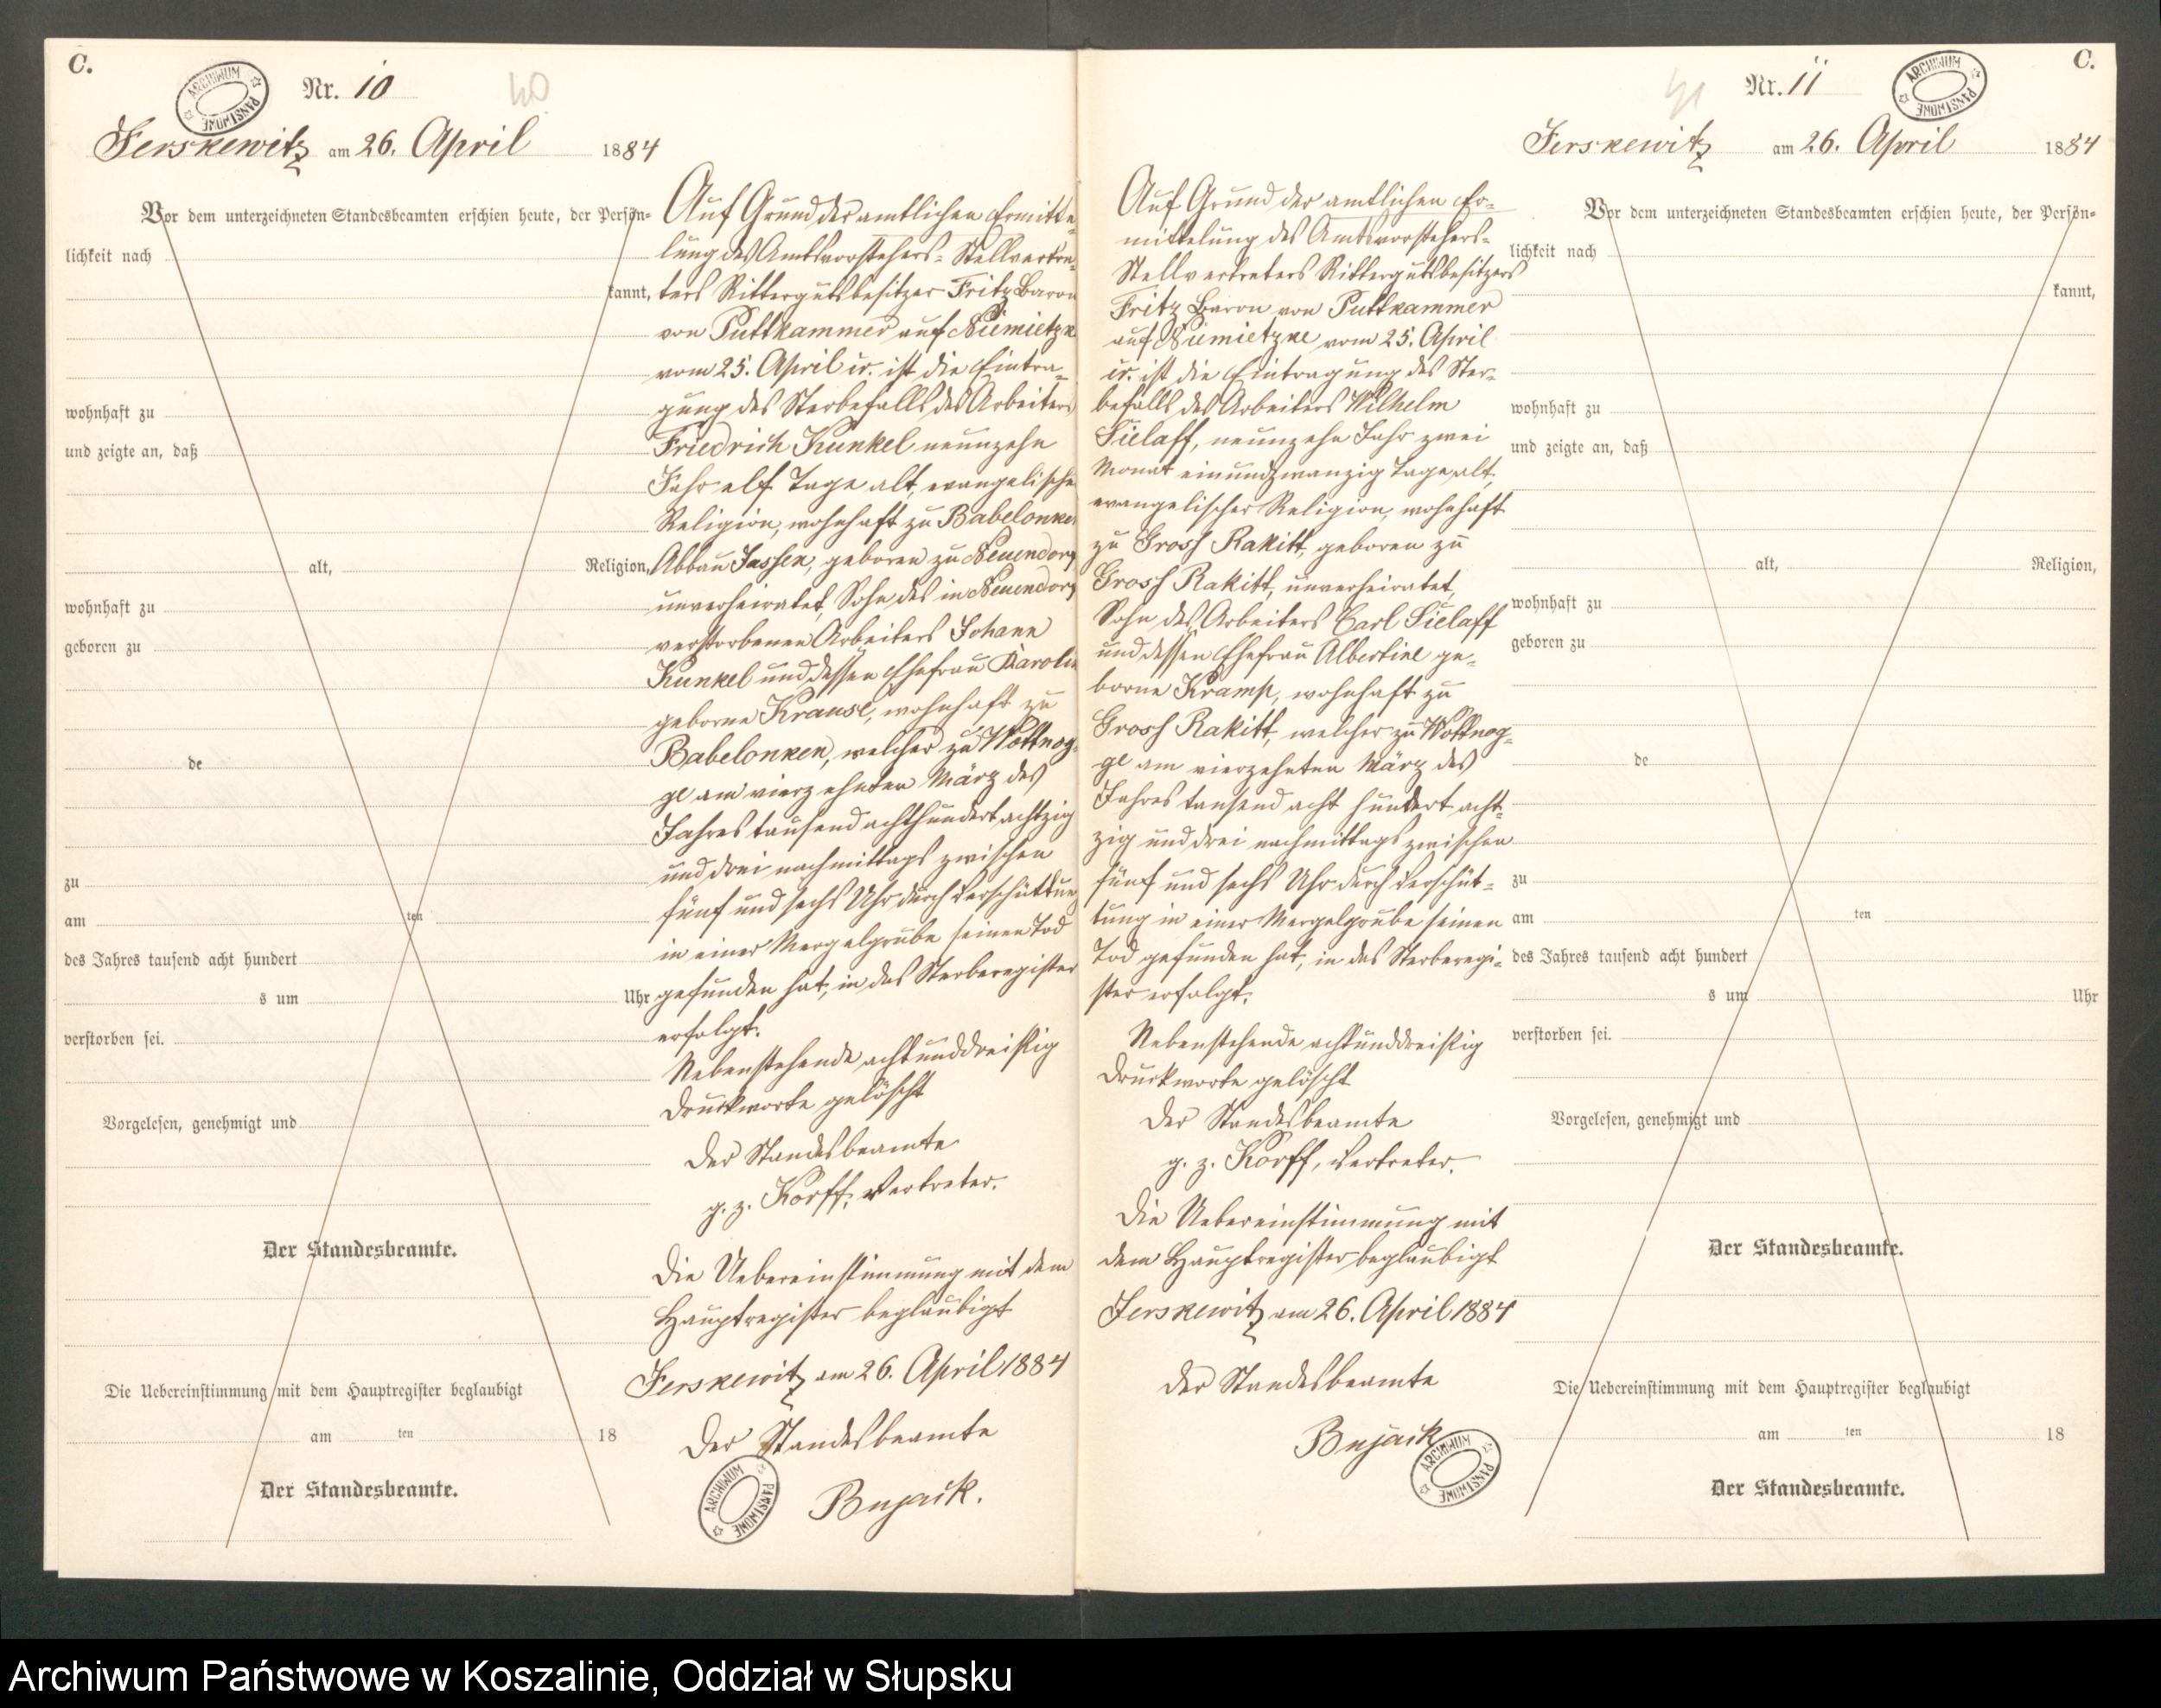 C.
ARCHIWUM PAŃSTWOWE
Nr. 10
40
Jerskewitz am 26. April 1884
Vor dem unterzeichneten Standesbeamten erschien heute, der Persön-
lichkeit nach
kannt,
wohnhaft zu
und zeigte an, daß
alt, Religion,
wohnhaft zu
geboren zu
de
zu
am ten
des Jahres tausend acht hundert
s um Uhr
verstorben sei.
Vorgelesen, genehmigt und
Der Standesbeamte.
Die Uebereinstimmung mit dem Hauptregister beglaubigt
am ten 18
Der Standesbeamte.
Auf Grund der amtlichen Ermitte-
lung des Amtsvorstehers-Stellvertre-
ters Rittergutsbesitzer Fritz Baron
von Puttkammer auf Niemietzke
vom 25. April cr. ist die Eintra-
gung des Sterbefalls des Arbeiters
Friedrich Kunkel neunzehn
Jahr elf Tage alt, evangelischer
Religion, wohnhaft zu Babelonken
Abbau Jassen, geboren zu Neuendorf
unverheiratet, Sohn des in Neuendorf
verstorbenen Arbeiters Johann
Kunkel und dessen Ehefrau Karolin
geborne Krause, wohnhaft zu
Babelonken, welcher zu Wottnog-
ge am vierzehnten März des
Jahres tausend achthundert achtzig
und drei nachmittags zwischen
fünf und sechs Uhr durch Verschüttung
in einer Mergelgrube seinen Tod
gefunden hat, in das Sterberegister
erfolgt.
Nebenstehende achtunddreißig
Druckworte gelöscht
Der Standesbeamte
g. z. Korff, Vertreter.
Die Uebereinstimmung mit dem
Hauptregister beglaubigt
Jerskewitz am 26. April 1884
Der Standesbeamte
ARCHIWUM PAŃSTWOWE
Bujack.
C.
ARCHIWUM PAŃSTWOWE
Nr. 11
41
Jerskewitz am 26. April 1884
Auf Grund der amtlichen Er-
mittelung des Amtsvorstehers-
Stellvertreters Rittergutsbesitzers
Fritz Baron von Puttkammer
auf Niemietzke vom 25. April
cr. ist die Eintragung des Ster-
befalls des Arbeiters Wilhelm
Sielaff, neunzehn Jahr zwei
Monat einundzwanzig Tage alt,
evangelischer Religion, wohnhaft
zu Gross Rakitt, geboren zu
Gross Rakitt, unverheiratet,
Sohn des Arbeiters Carl Sielaff
und dessen Ehefrau Albertine ge-
borne Kramp, wohnhaft zu
Gross Rakitt, welcher zu Wottnog-
ge am vierzehnten März des
Jahres tausend acht hundert acht-
zig und drei nachmittags zwischen
fünf und sechs Uhr durch Verschüt-
tung in einer Mergelgrube seinen
Tod gefunden hat, in das Sterberegi-
ster erfolgt.
Nebenstehende achtunddreißig
Druckworte gelöscht
Der Standesbeamte
g. z. Korff, Vertreter.
Die Uebereinstimmung mit
dem Hauptregister beglaubigt
Jerskewitz am 26. April 1884
Der Standesbeamte
Bujack
ARCHIWUM PAŃSTWOWE
Vor dem unterzeichneten Standesbeamten erschien heute, der Persön-
lichkeit nach
kannt,
wohnhaft zu
und zeigte an, daß
alt, Religion,
wohnhaft zu
geboren zu
de
zu
am ten
des Jahres tausend acht hundert
s um Uhr
verstorben sei.
Vorgelesen, genehmigt und
Der Standesbeamte.
Die Uebereinstimmung mit dem Hauptregister beglaubigt
am ten 18
Der Standesbeamte.
Archiwum Państwowe w Koszalinie, Oddział w Słupsku